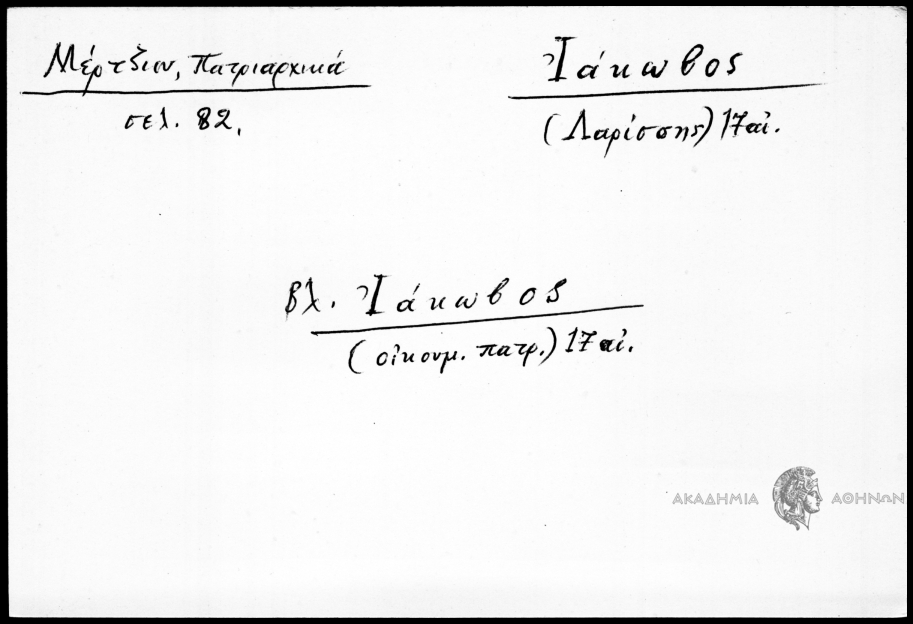 Μέρτζιου, Πατριαρχικά
σελ. 82.
Ἰάκωβος
(Λαρίσσης) 17 αἰ.
βλ. Ἰάκωβος
(οἰκουμ. πατρ.) 17 αἰ.
ΑΚΑΔΗΜΙΑ ΑΘΗΝΩΝ